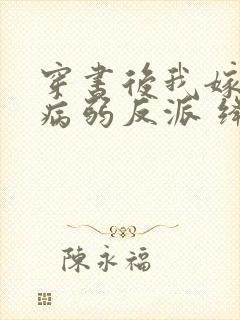 穿書後我嫁
病弱反派
陳永福